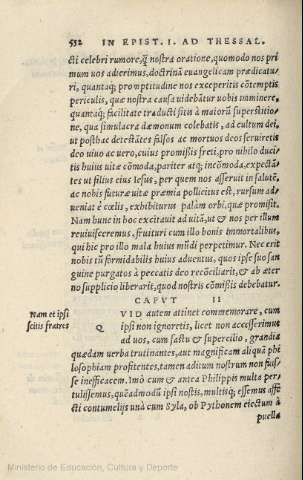 552 IN EPIST. I. AD THESSAL.
cti celebri rumore, ꝗ̃ nostra oratione, quomodo nos pri
mum uos adierimus, doctrinã euangelicam prædicatu/
ri, quantaq́; promptitudine nos exceperitis cõtemptis
periculis, quæ nostra causa uidebãtur uobis imminere,
quamq́; facilitate traducti sitis à maiorũ superstitio/
ne, qua simulacra dæmonum colebatis, ad cultum dei,
ut posthac detestãtes falsos ac mortuos deos seruiretis
deo uiuo ac uero, cuius promissis freti, pro nihilo duci
tis huius uitæ cõmoda, pariter atq; incõmoda, expectã/
tes ut filius eius Iesus, per quem nos asseruit in salutẽ,
ac nobis futuræ uitæ præmia pollicitus est, rursum ad/
ueniat è cœlis, exhibiturus palàm orbi, quæ promisit.
Nam hunc in hoc excitauit ad uitã, ut & nos per illum
reuiuisceremus, fruituri cum illo bonis immortalibus,
qui hic pro illo mala huius mũdi perpetimur. Nec erit
nobis tũ formidabilis huius aduentus, quos ipse suo san
guine purgatos à peccatis deo recõciliarit, & ab æter
no supplicio liberarit, quod nostris cõmissis debebatur.
CAPVT II
Nam et ipsi
scitis fratres
QVID autem attinet commemorare, cum
ipsi non ignoretis, licet non accesserimus
ad uos, cum fastu & supercilio, grandia
quædam uerba trutinantes, aut magnificam aliquã phi
losophiam profitentes, tamen aditum nostrum non fuis/
se inefficacem. Imò cum & antea Philippis multa per/
tulissemus, quẽadmodũ ipsi nostis, multisq́; essemus affe
cti contumelijs unà cum Syla, ob Pythonem eiectum à
puella
Ministerio de Educación, Cultura y Deporte